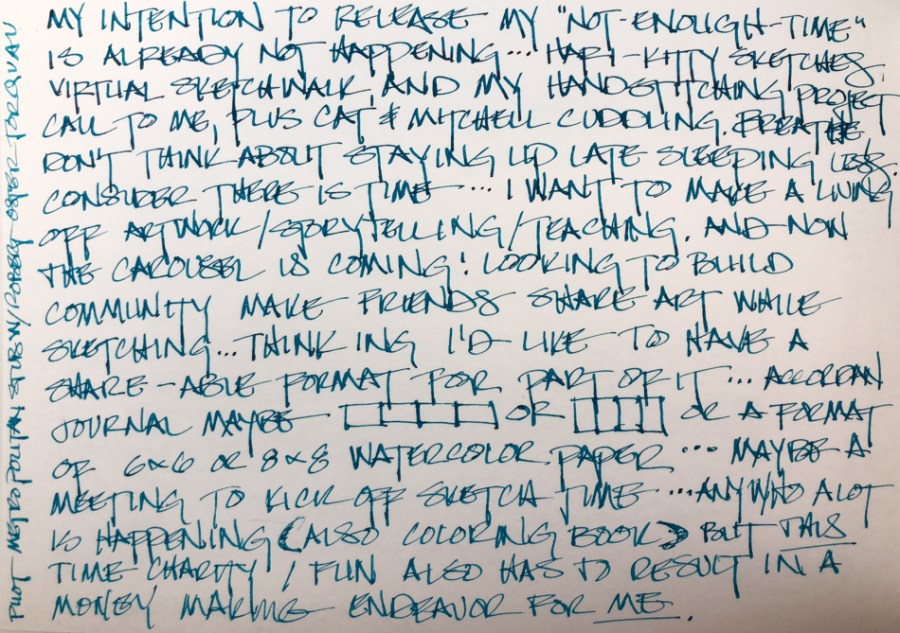 MY INTENTION TO RELEASE MY "NOT-ENOUGH-TIME"
IS ALREADY NOT HAPPENING... HARI-KITTY SKETCHES,
VIRTUAL SKETCHWALK, AND MY HANDSTITCHING PROJECT
CALL TO ME, PLUS CAT & MITCHELL CUDDLING. BREATHE
DON'T THINK ABOUT STAYING UP LATE SLEEPING LESS.
CONSIDER THERE IS TIME... I WANT TO MAKE A LIVING
OFF ARTWORK/STORYTELLING/TEACHING. AND NOW
THE CAROUSEL IS COMING! LOOKING TO BUILD
COMMUNITY MAKE FRIENDS SHARE ART WHILE
SKETCHING... THINKING I'D LIKE TO HAVE A
SHARE-ABLE FORMAT FOR PART OF IT... ACCORDIAN
JOURNAL MAYBE OR OR A FORMAT
OF 6x6 OR 8x8 WATERCOLOR PAPER... MAYBE A
MEETING TO KICK OFF SKETCH TIME... ANYWHO A LOT
IS HAPPENING (ALSO COLORING BOOK) BUT THIS
TIME CHARITY / FUN ALSO HAS TO RESULT IN A
MONEY MAKING ENDEAVOR FOR ME.
PILOT METROPOLITAN STUB W/ROBERT OSTER TORQUAY